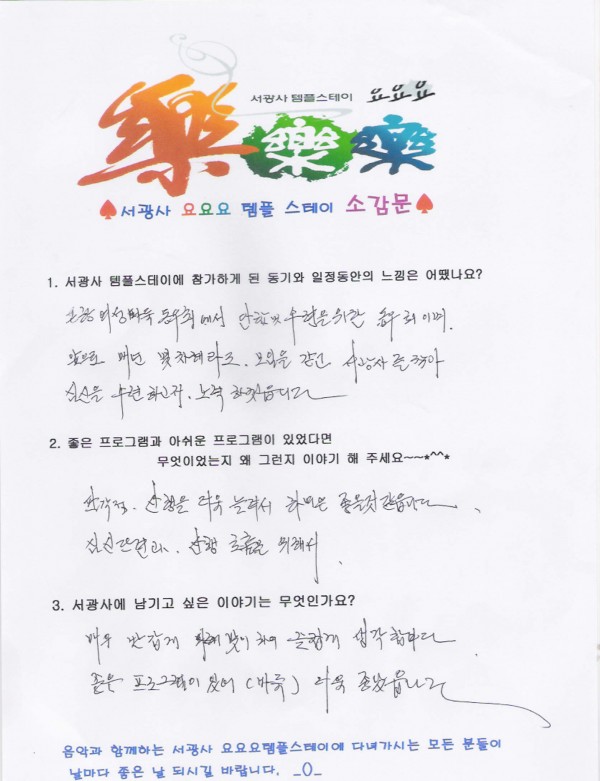 서광사 템플스테이 요요요
樂 樂 樂
♠서광사 요요요 템플 스테이 소감문♠
1. 서광사 템플스테이에 참가하게 된 동기와 일정동안의 느낌은 어땠나요?
여성바둑 동우회에서 수련을 위한
앞으로 매년 몇차례라도, 모임을 갖고 서광사를 찾아
심신을 수련하고자, 노력 하겠읍니다
2. 좋은 프로그램과 아쉬운 프로그램이 있었다면
무엇이었는지 왜 그런지 이야기 해 주세요~~*^^*
산행을 더욱 늘려서 하면은 좋을것 같읍니다.
심신단련과, 산행 호흡을 위해서
3. 서광사에 남기고 싶은 이야기는 무엇인가요?
매우 반갑게 맞이하여 즐겁게 생각합니다
좋은 프로그램이 있어 (바둑) 더욱 좋았읍니다
음악과 함께하는 서광사 요요요템플스테이에 다녀가시는 모든 분들이
날마다 좋은 날 되시길 바랍니다. _()_